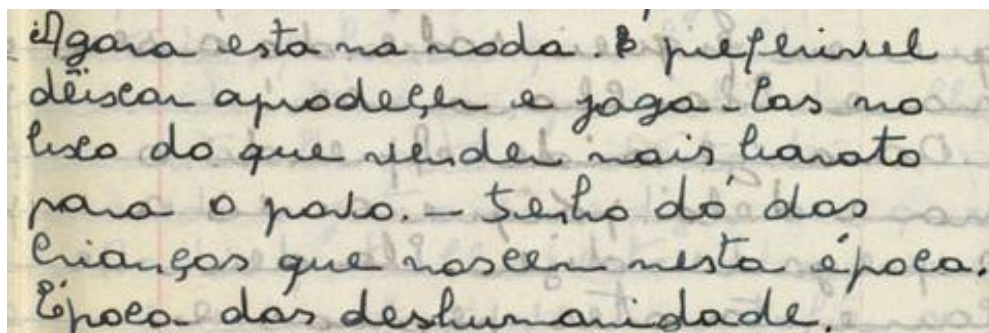 Agora esta na moda. É preferivel
dêixar aprodeçer e joga-las no
lixo do que vender mais barato
para o povo. – Tenho dó das
crianças que nascem nesta época.
Época das deshumanidade.